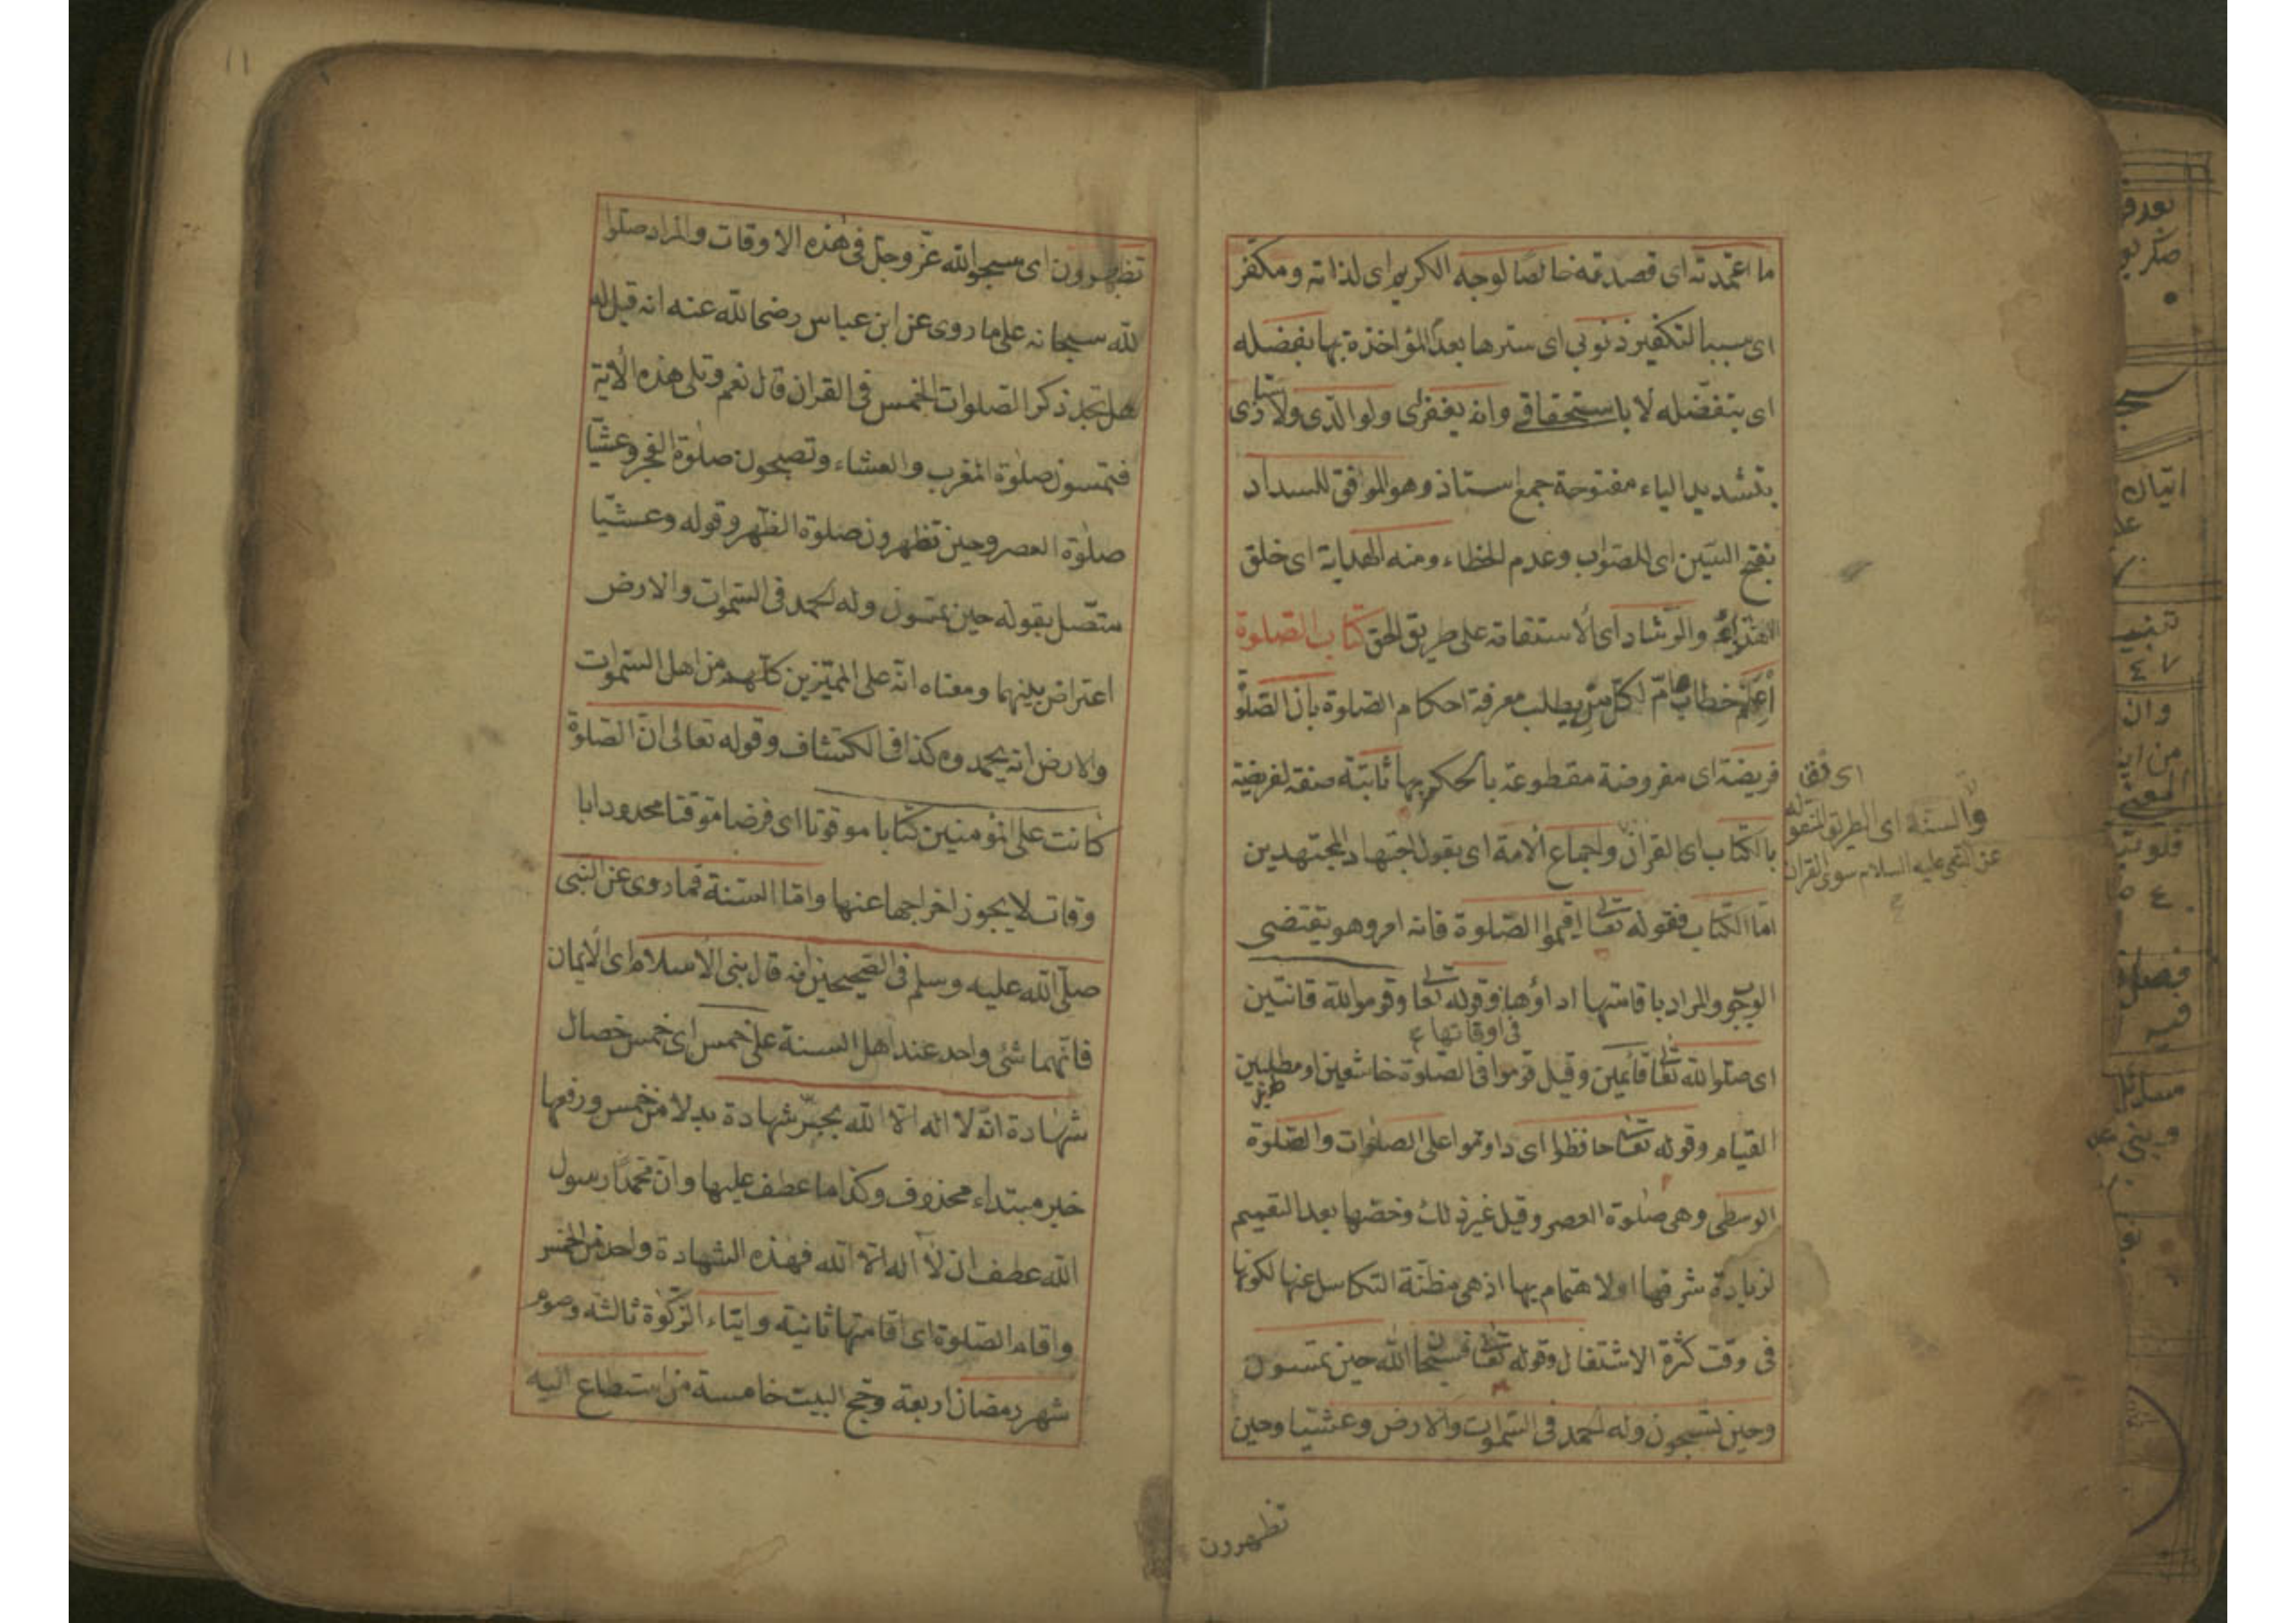 ما اعتمدته اى قصدته خالصا لوجه الكريم اى لذاته ومكفر
اى سببا لتكفير ذنوبى اى سترها بعد المؤاخذة بها بفضله
اى بتفضله لا باستحقاقى وانه يغفر لى ولوالدى ولاستاذى
بتشديد الياء مفتوحة جمع استاذ وهو الموافق للسداد
بفتح السين اى للصواب وعدم الخطاء ومنه الهداية اى خلق
الاهتداء والرشاد اى الاستقامة على طريق الحق كتاب الصلوة
اعلم خطاب عام لكل من يطلب معرفة احكام الصلوة بان الصلوة
فريضة اى مفروضة مقطوعة بالحكم بها ثابتة صفة لفريضة
بالكتاب اى القران واجماع الامة اى بقول اجتهاد المجتهدين
اما الكتاب فقوله تعالى اقيموا الصلوة فانه امر وهو يقتضى
الوجوب والمراد باقامتها اداؤها وقوله تعالى وقوموا لله قانتين
فى اوقاتها
اى صلوا لله تعالى قائمين وقيل قوموا فى الصلوة خاشعين او مطيلين
القيام وقوله تعالى حافظوا اى داوموا على الصلوات والصلوة
الوسطى وهى صلوة العصر وقيل غير ذلك وخصها بعد التعميم
لزيادة شرفها او لاهتمام بها اذ هى مظنة التكاسل عنها لكونها
فى وقت كثرة الاشتغال وقوله تعالى فسبحان الله حين تمسون
وحين تصبحون وله الحمد فى السموات والارض وعشيا وحين
تظهرون
والسنة اى الطريق المنقولة
عن النبى عليه السلام سوى القران
١١
تظهرون اى سبحوا لله عز وجل فى هذه الاوقات والمراد صلوا
لله سبحانه على ما روى عن ابن عباس رضى الله عنه انه قيل له
هل تجد ذكر الصلوات الخمس فى القران قال نعم وتلى هذه الاية
فتمسون صلوة المغرب والعشاء وتصبحون صلوة الفجر وعشيا
صلوة العصر وحين تظهرون صلوة الظهر وقوله وعشيا
متصل بقوله حين تمسون وله الحمد فى السموات والارض
اعتراض بينهما ومعناه انه على المميزين كلهم من اهل السموات
والارض انه يحمدوه كذا فى الكشاف وقوله تعالى ان الصلوة
كانت على المؤمنين كتابا موقوتا اى فرضا موقتا محدودا با
وقات لا يجوز اخراجها عنها واما السنة فما روى عن النبى
صلى الله عليه وسلم فى الصحيحين انه قال بنى الاسلام اى الايمان
فانهما شئ واحد عند اهل السنة على خمس اى خمس خصال
شهادة ان لا اله الا الله بجر شهادة بدلا من خمس ورفعها
خبر مبتداء محذوف وكذا ما عطف عليها وان محمدا رسول
الله عطف ان لا اله الا الله فهذه الشهادة واحد من الخمس
واقام الصلوة اى اقامتها ثانية وايتاء الزكوة ثالثة وصوم
شهر رمضان اربعة وحج البيت خامسة من استطاع اليه